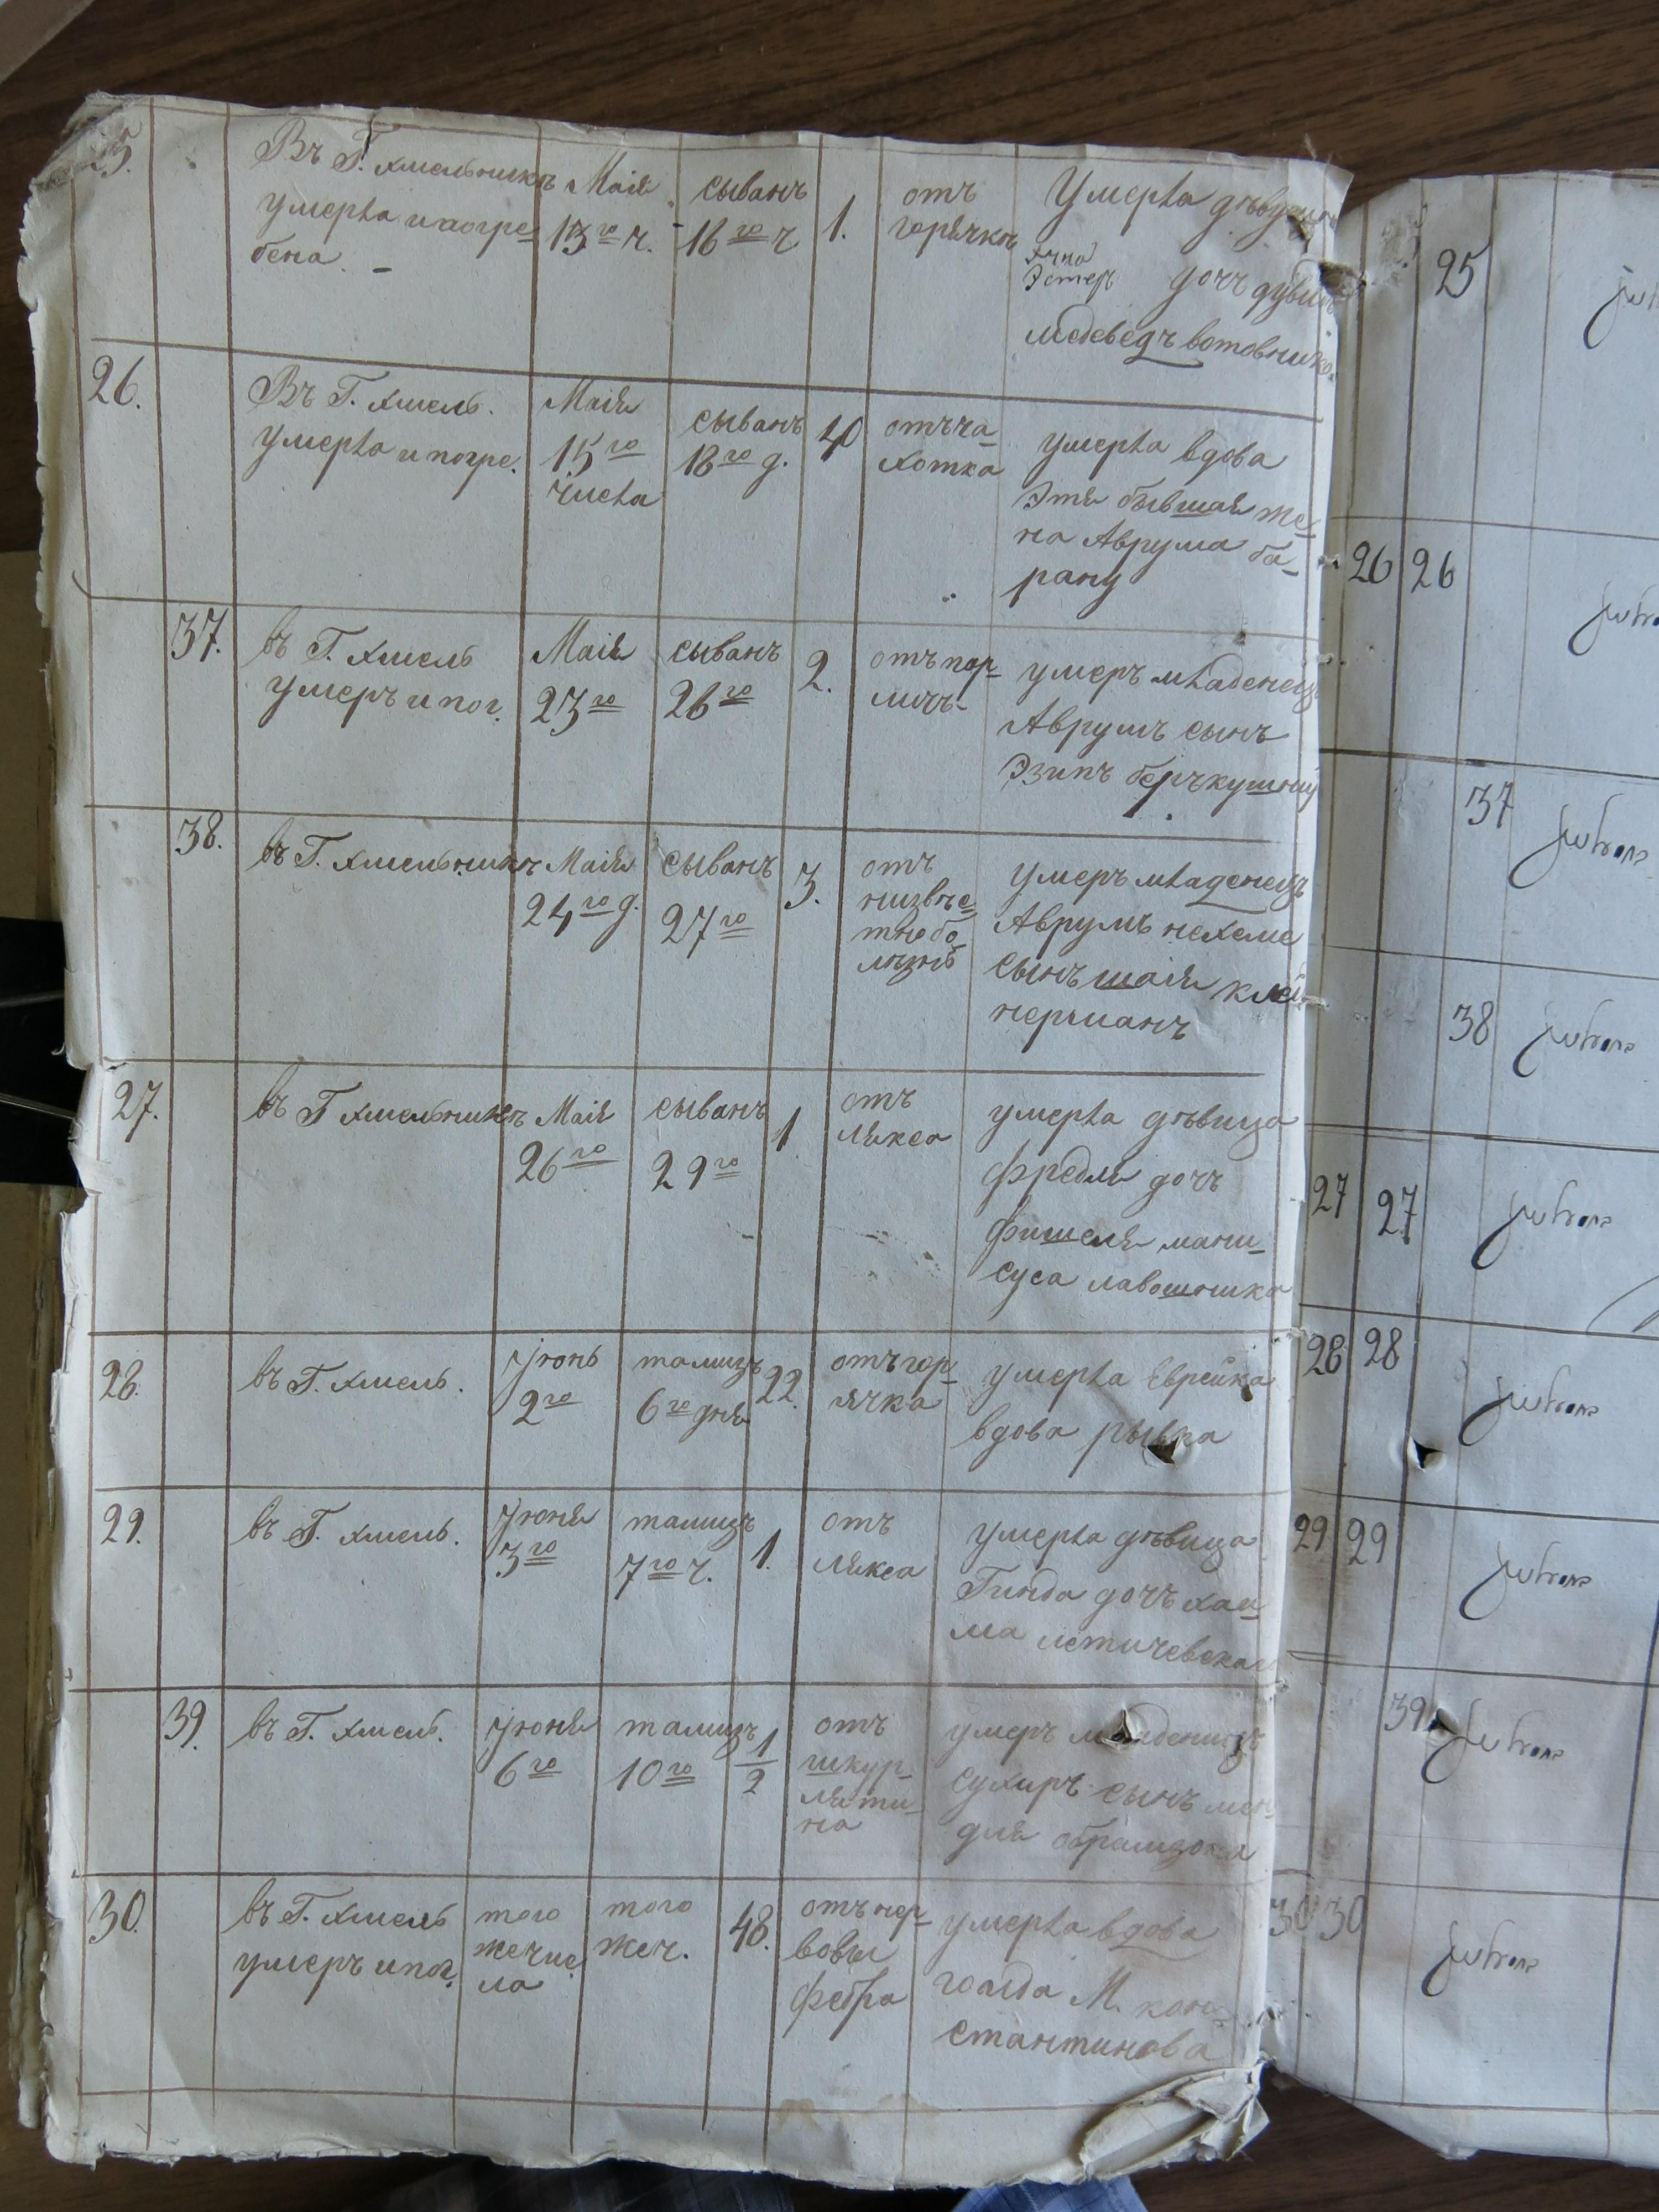 25.
Въ Г. Хмельникъ
умерла и погре-
бена. -
Маія
13го ч.
сыванъ
16го ч
1.
отъ
горячкъ
Умерла дѣвушка
Хича
Эстеръ дочъ
медеведъ вотовника
26.
Въ Г. Хмель.
умерла и погре.
Маія
15го
числа
сыванъ
18го д.
40
отъ ча-
хотка
умерла вдова
Этя бывшая же-
на Аврума ба-
рану
37.
въ Г. Хмель
умеръ и пог.
Маія
23го
сыванъ
26го
2.
отъ пор-
личъ
умеръ младенецъ
Аврумъ сынъ
Эзипъ беръкушниу
38.
въ Г. Хмельникъ
Маія
24го д.
сыванъ
27го
3.
отъ
низвѣс
тно бо-
лѣзнь
умеръ младенецъ
Аврумъ нехеме
сынъ шаія клей
нерманъ
27.
въ Г Хмельникъ
Маія
26го
сыванъ
29го
1
отъ
лякса
умерла дѣвица
фредля дочъ
фишеля мани-
суса лавошника
28.
въ Г. Хмель.
Іюнь
2го
тамизъ
6го дня
22.
отъ гор-
ячка
умерла Еврейка
вдова рывка
29.
въ Г. Хмель.
Іюня
3го
тамизъ
7го ч.
1.
отъ
лякса
умерла дѣвица
Гинда дочъ хаи-
ма летичевскаго
39.
въ Г. Хмель.
Іюня
6го
тамизъ
10го
1/2
отъ
шкур-
ляти-
на
умеръ младеницъ
сухиръ сынъ мен
для
30.
въ Г. Хмель
умеръ и пог.
того
же чис.
ла
того
же ч.
48.
отъ нер-
вовы
фебра
умерла вдова
голда М. кон-
стантинова
25
26 26
37
38
27 27
28 28
29 29
39
30 30